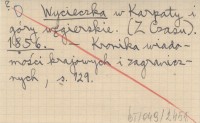 D Wycieczka w Karpaty i
góry węgierskie. (Z Czasu).
1856. — Kronika wiado-
mości krajowych i zagranicz-
nych, s. 129.